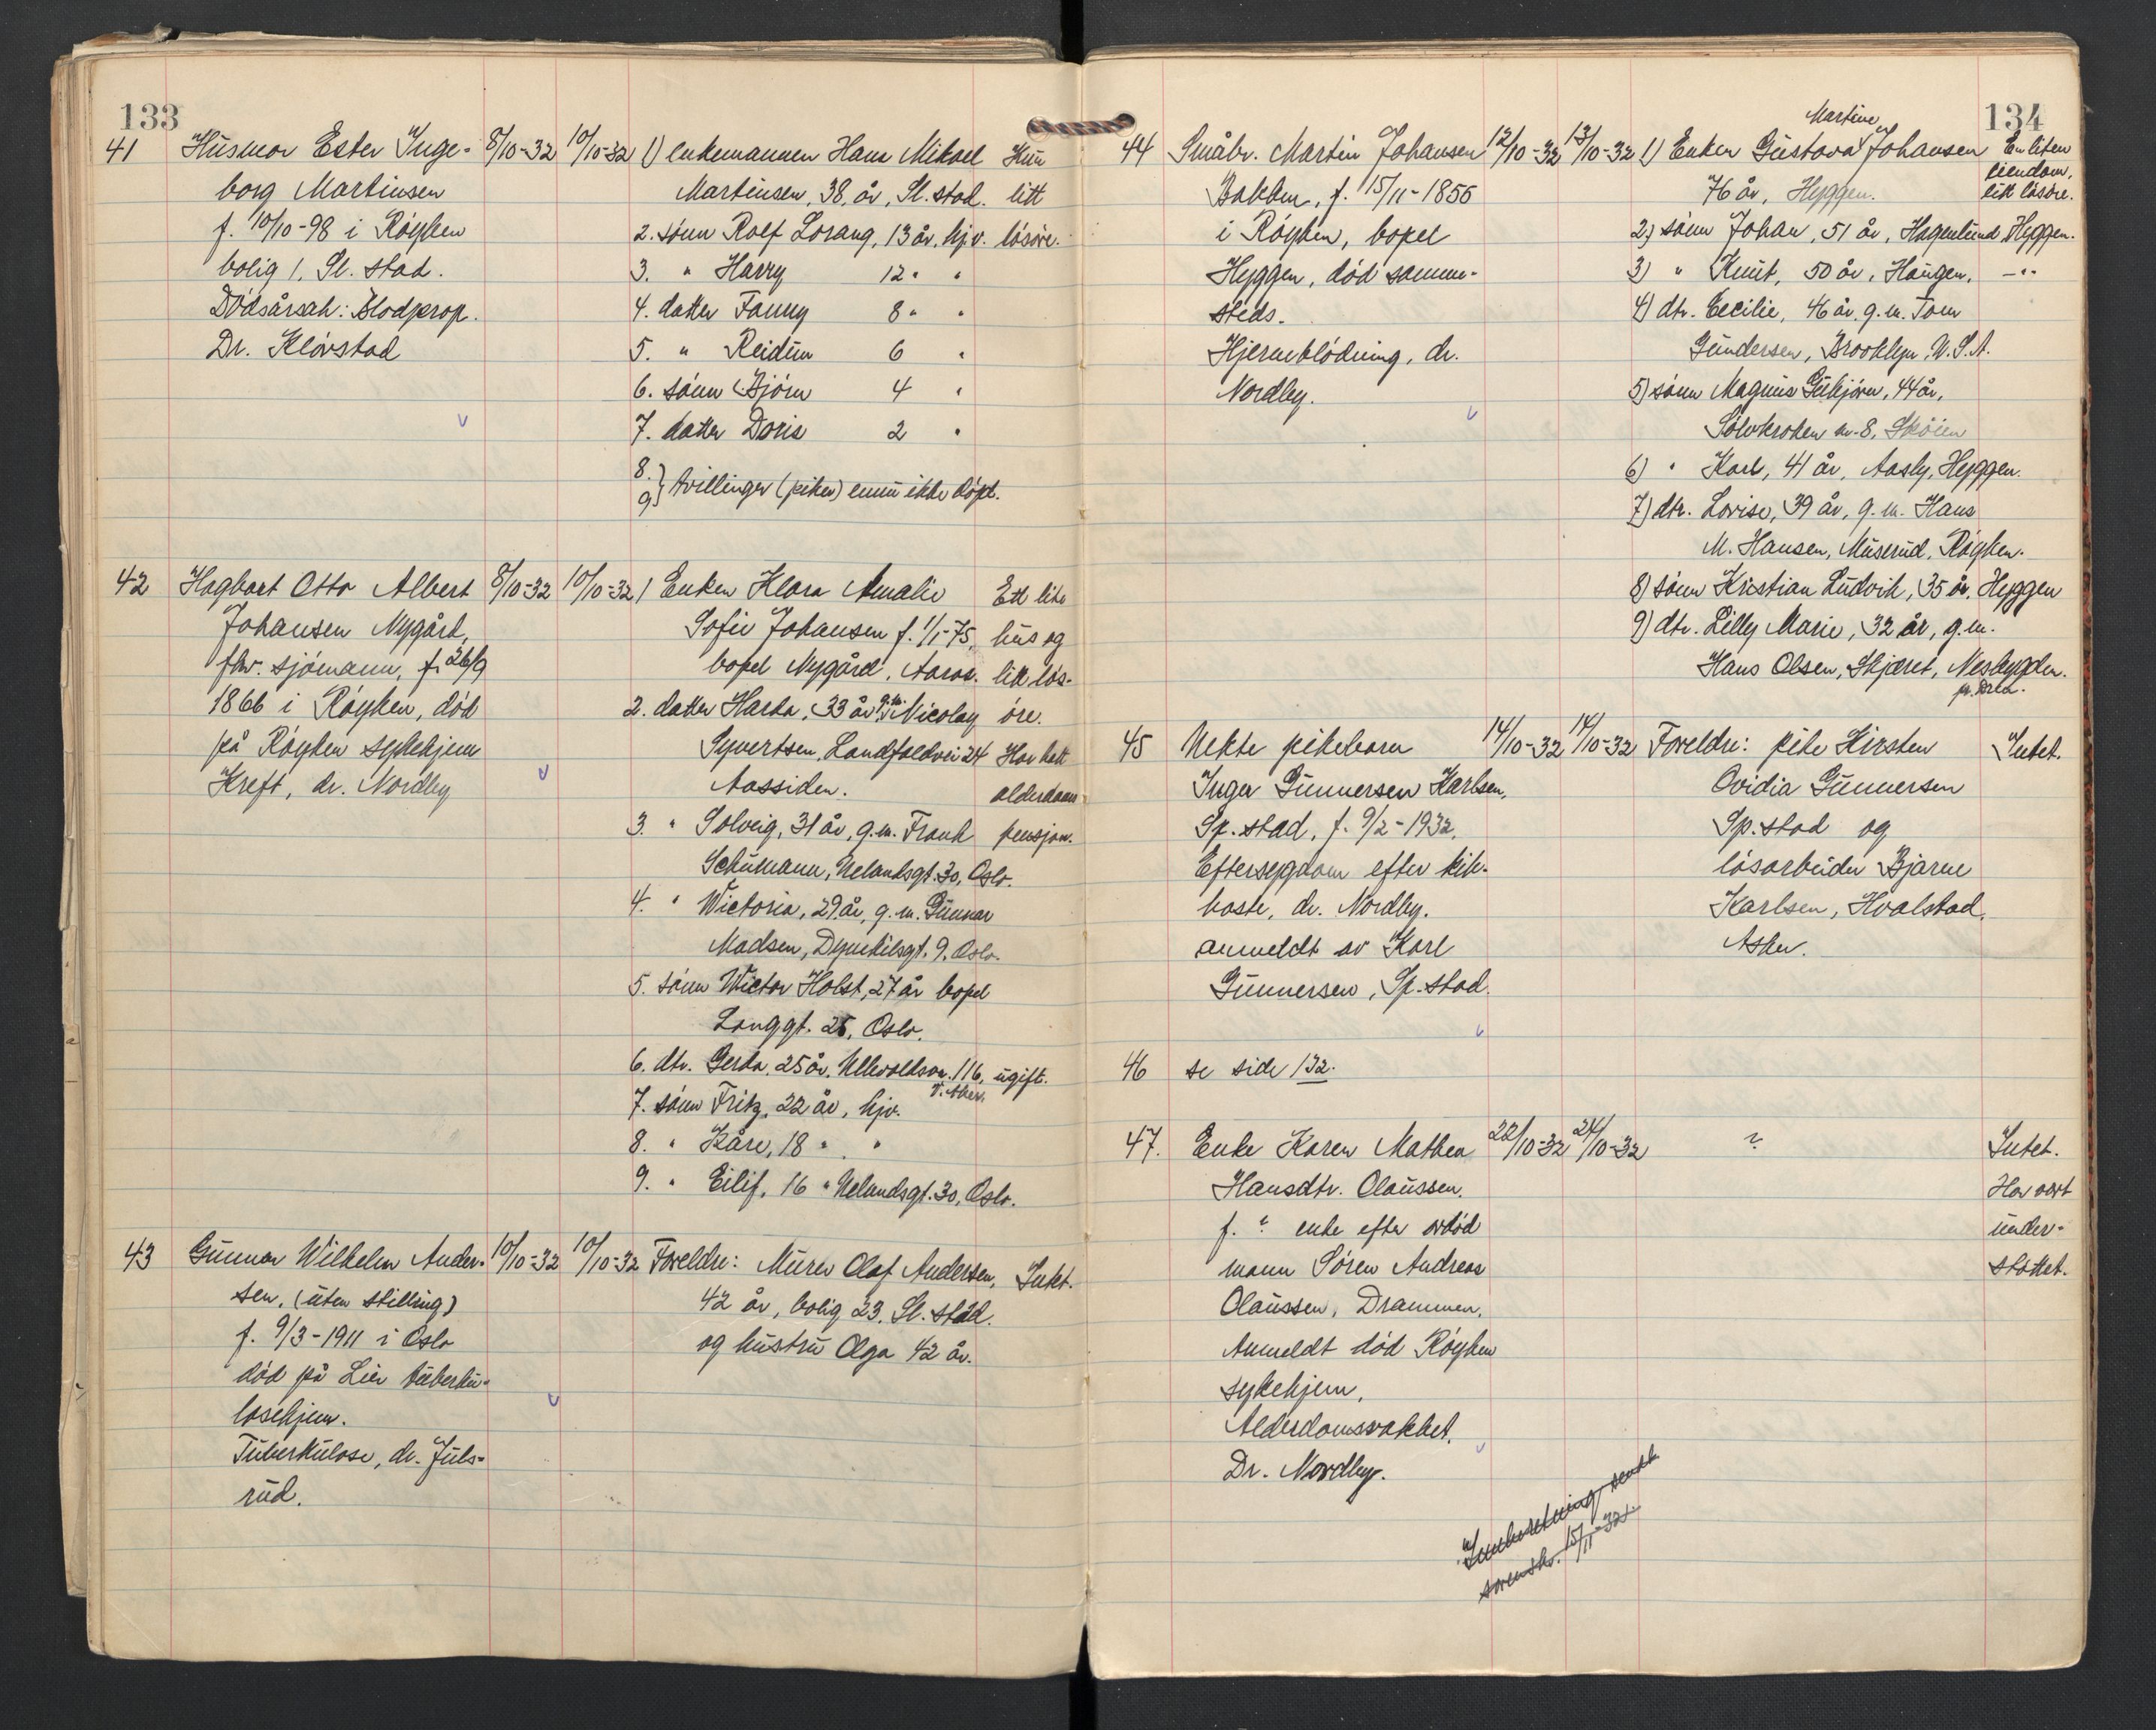 133
41 Husmor Ester Inge- 8/10-32 10/10-32 1) enkemannen Hans Mikael Kun
borg Martinsen Martinsen, 38 år, Sl. stad. litt
f. 10/10-98 i Røyken 2. sønn Rolf Lorang, 13 år, hjv. løsøre.
bolig 1, Sl. stad. 3. " Harry 12 " "
Dødsårsak: Blodprop. 4. datter Fanny 8 " "
Dr. Kløvstad 5. " Reidun 6 "
6. sønn Bjørn 4 "
7. datter Doris 2 "
8.
9.} tvillinger (piker) ennu ikke døpt.
42 Hagbart Otto Albert 8/10-32 10/10-32 1 Enken Klara Amalie Ett lite
Johansen Nygård, Sofie Johansen f. 1/1-75, hus og
fhv. sjømann, f. 26/9 bopel Nygård, Aaros. litt løs-
1866 i Røyken, død 2. datter Harda, 33 år g.m. Nicolay øre.
på Røyken sykehjem Syvertsen, Landfaldvei 24 Har hatt
Kreft, dr. Nordby Aassiden. alderdoms-
3. " Solveig, 31 år, g.m. Frank pensjon.
Schumann, Uelandsgt. 30, Oslo.
4. " Wictoria, 29 år, g.m. Gunnar
Madsen, Dynekilsgt. 9. Oslo.
5. sønn Wictor Holst, 27 år bopel
Langgt. 25, Oslo.
6. dtr. Gerda, 25 år, Ullevoldsv. 116, ugift.
V. Aker.
7. sønn Fritz, 22 år, hjv.
8. " Kåre, 18 " "
9. " Eilif, 16 " Uelandsgt. 30, Oslo.
43 Gunnar Wilhelm Ander- 10/10-32 10/10-32 Foreldre: Murer Olaf Andersen, Intet.
sen, (uten stilling) 42 år, bolig 23, Sl. stad.
f. 9/3-1911 i Oslo og hustru Olga 42 år.
død på Lier tuberku-
losehjem.
Tuberkulose, dr. Juls-
rud.
134
Martine
44 Småbr. Martin Johansen 12/10-32 13/10-32 1) Enken Gustava Johansen En liten
Bakken, f. 15/11-1855 76 år, Hyggen. eiendom, litt løsøre.
i Røyken, bopel 2) sønn Johan, 51 år, Hagenlund, Hyggen.
Hyggen, død samme- 3) " Knut, 50 år, Haugen, -"-
steds. 4) dtr. Cecilie, 46 år, g.m. Tom
Hjerneblødning, dr. Gundersen, Brooklyn, U.S.A.
Nordby. 5) sønn Magnus Gubjørn, 44 år,
Sølvkroken nr. 8, Skøien
6) " Karl, 41 år, Aasly, Hyggen.
7) dtr. Lovise, 39 år, g.m. Hans
M. Hansen, Muserud, Røyken.
8) sønn Kristian Ludvik, 35 år, Hyggen
9) dtr. Lilly Marie, 32 år, g.m.
Hans Olsen, Skjæret, Nesbygden.
pr. Drm.
45 Uekte pikebarn 14/10-32 14/10-32 Foreldre: pike Kirsten Intet.
Inger Gunnersen Karlsen, Ovidia Gunnersen
Sp.stad, f. 9/2-1932. Sp.stad og
Eftersygdom efter kik- løsarbeider Bjarne
hoste, dr. Nordby. Karlsen, Hvalstad,
anmeldt av Karl Asker.
Gunnersen, Sp.stad.
46 se side 132.
47. Enke Karen Mathea 22/10-32 24/10-32 ? Intet.
Hansdtr. Claussen, Har vært
f. ? enke efter avdød under-
mann Søren Andreas støttet.
Claussen, Drammen.
Anmeldt død Røyken
sykehjem,
Alderdomssvakhet.
Dr. Nordby.
Innberetning sendt
sorenskr. 15/11-32.